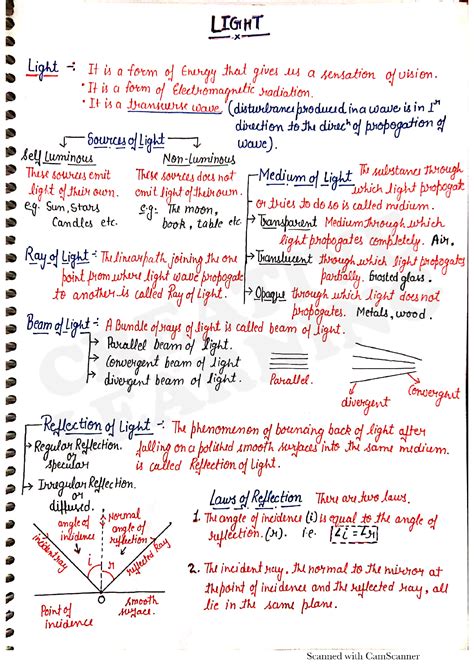 LIGHT
Light :- It is a form of Energy that gives us a sensation of vision.
• It is a form of Electromagnetic radiation.
• It is a transverse wave (disturbance produced in a wave is in Ir
direction to the direcn of propogation of
wave).
Sources of Light
Self Luminous
These sources emit
light of their own.
e.g. Sun, Stars
Candles etc.
Non-Luminous
These sources does not
emit light of their own.
eg:- The moon,
book, table etc
Medium of Light The substance through
which light propogat
or tries to do so is called medium.
Transparent Medium through which
light propogates completely. Air.
Translucent through which light propogates
partially. frosted glass.
Opaque through which light does not
propogates. Metals, wood.
Ray of Light :- The linear path joining the one
point from where light wave propogate
to another is called Ray of Light.
Beam of Light :- A Bundle of rays of light is called beam of light.
Parallel beam of light
Convergent beam of light
divergent beam of light.
Parallel.
divergent
Convergent
Reflection of Light :- The phenomenon of bouncing back of light after
falling on a polished smooth surfaces into the same medium.
is called Reflection of Light.
Regular Reflection
or
specular
Irregular Reflection.
or
diffused.
incident ray
angle of
incidence
Normal
angle of
reflection
reflected Ray
i
r
O
Point of
incidence
smooth
surface.
Laws of Reflection There are two laws.
1. The angle of incidence (i) is equal to the angle of
reflection. (r). i.e. ∠i = ∠r
2. The incident ray, the normal to the mirror at
the point of incidence and the reflected ray, all
lie in the same plane.
Scanned with CamScanner